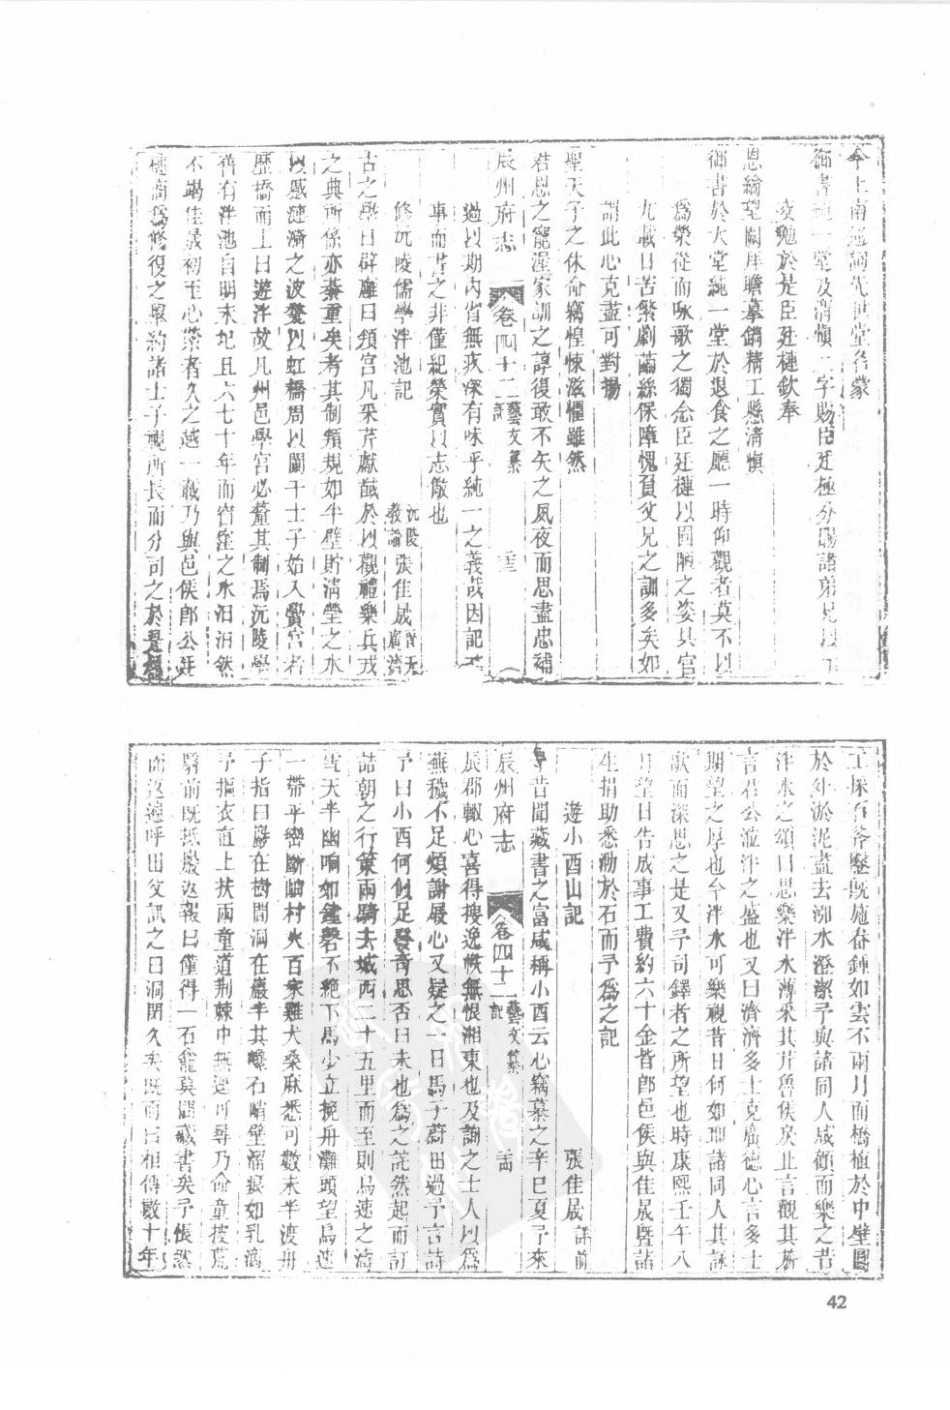 今上南巡詢先世堂名蒙
御書純一堂及清慎二字賜臣廷極分賜諸弟兄以
交勉於是臣廷槤欽奉
恩綸望闕拜瞻摹鐫精工懸清慎
御書於大堂純一堂於退食之廳一時仰觀者莫不以
為榮從而咏歌之獨念臣廷槤以固陋之姿其官
九載日苦繁劇繭絲保障愧負父兄之訓多矣如
謂此心克盡可對揚
聖天子之休命竊惶悚滋懼雖然
君恩之寵渥家訓之諄復敢不矢之夙夜而思盡忠補
辰州府志 卷四十二 藝文纂 記
過以期內省無疚深有味乎純一之義哉因記
事而書之非僅紀榮實以志儆也
修沅陵儒學泮池記 沅陵教諭張佳晟 廣濟
古之學曰辟廱曰頖宮凡采芹獻馘於以觀禮樂兵戎
之典所係亦綦重矣考其制頖規如半壁貯清瑩之水
以感漣漪之波甃以虹橋周以闌干士子始入黌宮者
歷橋而上曰遊泮故凡州邑學宮必釐其制焉沅陵學
舊有泮池自明末圮且六七十年而窅窪之水汨汨然
不竭佳晟初至心縈者久之越一載乃與邑侯郎公廷
極商為修復之舉約諸士子視所長而分司之於是
工採石斧鑿既施畚鍤如雲不兩月而橋植於中壁圜
於外淤泥盡去泖水澄潔予與諸同人咸顧而樂之昔
泮水之頌曰思樂泮水薄采其芹魯侯戾止言觀其旂
言君公蒞泮之盛也又曰濟濟多士克廣德心言多士
期望之厚也今泮水可樂視昔日何如耶諸同人其詠
歌而深思之是又予司鐸者之所望也時康熙壬午八
月望日告成事工費約六十金皆郎邑侯與佳晟暨諸
生捐助悉泐於石而予為之記
遊小酉山記 張佳晟 詳前
昔聞藏書之富咸稱小酉云心竊慕之辛巳夏予來
辰州府志 卷四十二 藝文纂 記
辰郡輒心喜得搜逸帙無恨湘東也及詢之士人以為
蕪穢不足煩謝屐心又疑之一日馬子蔚田過予言詩
予曰小酉何似足發奇思否曰未也為之詫然起而訂
詰朝之行策兩騎去城西二十五里而至則烏速之濤
雪天半幽响如鐘磬不絕下馬少立挽舟灘頭望烏速
一帶平巒斷岫村火百家雞犬桑麻悉可數未半渡舟
子指曰廡在樹間洞在巖半其巉石峭壁溜痕如乳滴
予摳衣直上扶兩童道荆棘中無逕可尋乃命童披荒
翳前既抵扳返報曰僅得一石龕莫覩藏書矣予悵然
而返遍呼田父訊之曰洞閉久矣既而曰相傳數十年
42